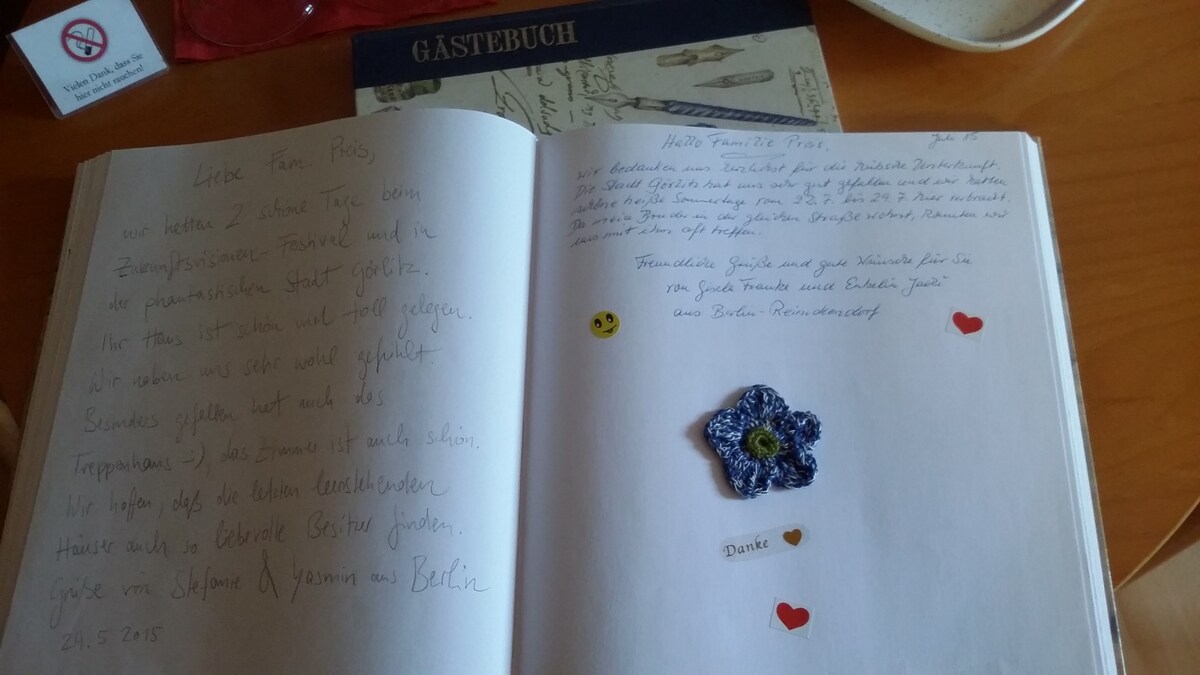 Vielen Dank, dass Sie
hier nicht rauchen!
GÄSTEBUCH
Liebe Fam. Preis,
wir hatten 2 schöne Tage beim
Zukunftsvisionen-Festival und in
der phantastischen Stadt Görlitz.
Ihr Haus ist schön und toll gelegen.
Wir haben uns sehr wohl gefühlt.
Besonders gefallen hat auch das
Treppenhaus :-), das Zimmer ist auch schön.
Wir hoffen, daß die letzten leerstehenden
Häuser auch so liebevolle Besitzer finden.
Grüße von Stefanie & Yasmin aus Berlin
24.5 2015
Hallo Familie Preis,
wir bedanken uns herzlichst für die hübsche Unterkunft.
Die Stadt Görlitz hat uns sehr gut gefallen und wir hatten
heiße Sommertage vom 22.7. bis 29.7. hier verbracht.
Da mein Bruder in der gleichen Straße wohnt, konnten wir
uns mit ihm oft treffen.
Freundliche Grüße und gute Wünsche für Sie
von Gisela Franke und Enkelin
aus Berlin-Reinickendorf
Danke